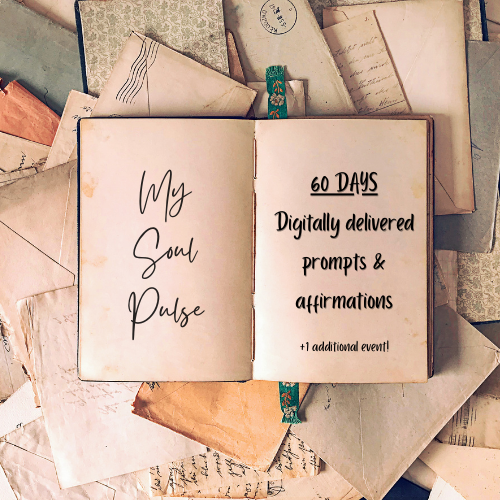 My
Soul
Pulse
60 DAYS
Digitally delivered
prompts &
affirmations
+1 additional event!